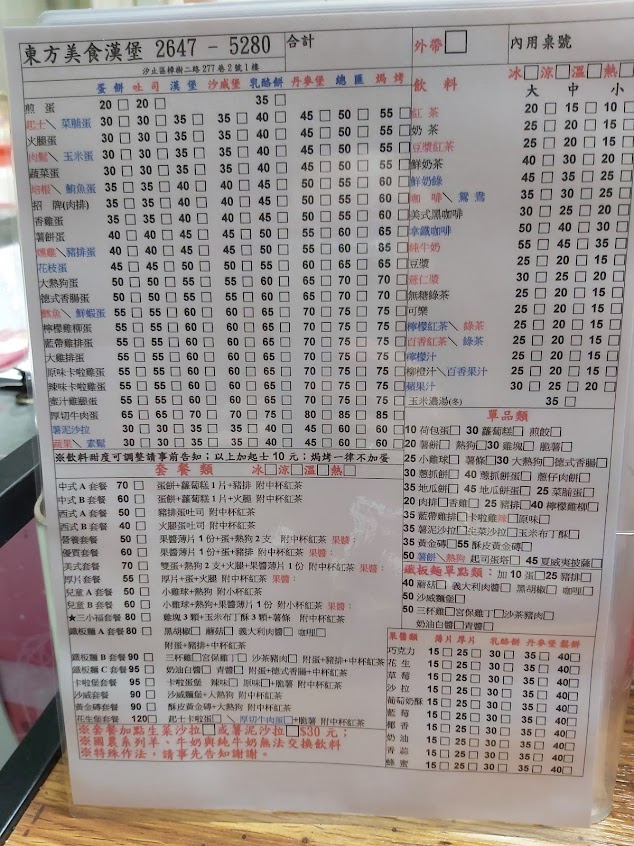 東方美食漢堡 2647 - 5280
汐止區樟樹二路277巷2號1樓
合計
外帶□
內用桌號
蛋餅 吐司 漢堡 沙威堡 乳酪餅 丹麥堡 總匯 焗烤
煎蛋 20□ 20□ 35□
起士╲菜脯蛋 30□ 30□ 35□ 35□ 40□ 45□ 50□ 55□
火腿蛋 30□ 30□ 35□ 35□ 40□ 45□ 50□ 55□
肉鬆╲玉米蛋 30□ 30□ 35□ 35□ 40□ 45□ 50□ 55□
蔬菜蛋 30□ 30□ 35□ 35□ 40□ 45□ 50□ 55□
培根╲鮪魚蛋 35□ 35□ 40□ 40□ 45□ 50□ 55□ 60□
招 牌(肉排) 35□ 35□ 40□ 40□ 45□ 50□ 55□ 60□
香雞蛋 35□ 35□ 40□ 40□ 45□ 50□ 55□ 60□
薯餅蛋 35□ 35□ 40□ 40□ 45□ 50□ 55□ 60□
燻雞╲豬排蛋 40□ 40□ 45□ 45□ 50□ 55□ 60□ 65□
花枝蛋 45□ 45□ 50□ 50□ 55□ 60□ 65□ 65□
大熱狗蛋 50□ 50□ 55□ 55□ 60□ 65□ 70□ 70□
德式香腸蛋 50□ 50□ 55□ 55□ 60□ 65□ 70□ 70□
鱈魚╲鮮蝦蛋 55□ 55□ 60□ 60□ 65□ 70□ 75□ 75□
檸檬雞柳蛋 55□ 55□ 60□ 60□ 65□ 70□ 75□ 75□
藍帶雞排蛋 55□ 55□ 60□ 60□ 65□ 70□ 75□ 75□
大雞排蛋 55□ 55□ 60□ 60□ 65□ 70□ 75□ 75□
原味卡啦雞蛋 55□ 55□ 60□ 60□ 65□ 70□ 75□ 75□
辣味卡啦雞蛋 55□ 55□ 60□ 60□ 65□ 70□ 75□ 75□
蜜汁雞腿蛋 55□ 55□ 60□ 60□ 65□ 70□ 75□ 75□
厚切牛肉蛋 65□ 65□ 70□ 70□ 75□ 80□ 85□ 85□
薯泥沙拉 30□ 30□ 35□ 35□ 40□ 45□ 50□ 55□
蔬果╲素鬆 30□ 30□ 35□ 35□ 40□ 45□ 50□ 55□
※飲料甜度可調整請事前告知；以上加起士10元；焗烤一律不加蛋
飲 料 冰□涼□溫□熱□
大 中 小
紅茶 20□ 15□ 10□
奶茶 25□ 20□ 15□
豆漿紅茶 25□ 20□ 15□
鮮奶茶 40□ 30□ 25□
鮮奶綠 40□ 30□ 25□
咖啡╲鴛鴦 35□ 30□ 25□
美式黑咖啡 30□ 25□ 20□
拿鐵咖啡 50□ 40□ 30□
純牛奶 55□ 45□ 35□
豆漿 25□ 20□ 15□
薏仁漿 30□ 25□ 20□
無糖綠茶 25□ 20□ 15□
可樂 25□ 20□ 15□
檸檬紅茶╲綠茶 25□ 20□ 15□
百香紅茶╲綠茶 25□ 20□ 15□
檸檬汁 25□ 20□ 15□
柳橙汁╲百香果汁 25□ 20□ 15□
蘋果汁 30□ 25□ 20□
玉米濃湯(冬) 35□
單品類
10 荷包蛋□ 30 蘿蔔糕□ 煎餃□
20 薯餅□ 熱狗□ 30 雞塊□ 脆薯□
25 小雞球□ 薯條□ 30 大熱狗□德式香腸□
30 蔥抓餅□ 40 蔥抓餅蛋□ 蔥仔肉餅□
35 地瓜餅□ 45 地瓜餅蛋□ 25 菜脯蛋□
20 肉排□香雞□ 25 豬排□40 檸檬雞柳□
35 藍帶雞排□卡啦雞辣□原味□
35 薯泥沙拉□生菜沙拉□玉米布丁酥□
35 黃金磚□ 55 酥皮黃金磚□
50 薯餅╲熱狗 起司蛋塔□ 45 夏威夷披薩□
鐵板麵單點類：加 10 蛋□ 25 豬排□
40 蘑菇□ 義大利肉醬□ 黑胡椒□ 咖哩□
50 沙威麵堡□
50 三杯雞□宮保雞丁□沙茶豬肉□
奶油白醬□ 青醬□
套餐類 冰□涼□溫□熱□
中式A套餐 70 □ 蛋餅+蘿蔔糕1片+豬排 附中杯紅茶
中式B套餐 60 □ 蛋餅+蘿蔔糕1片+火腿 附中杯紅茶
西式A套餐 50 □ 豬排蛋吐司 附中杯紅茶
西式B套餐 40 □ 火腿蛋吐司 附中杯紅茶
營養套餐 50 □ 果醬薄片1份+蛋+熱狗2支 附中杯紅茶 果醬：
優質套餐 60 □ 果醬薄片1份+蛋+豬排 附中杯紅茶 果醬：
美式套餐 70 □ 雙蛋+熱狗2支+火腿+果醬薄片1份 附中杯紅茶 果醬：
厚片套餐 55 □ 厚片+蛋+火腿 附中杯紅茶 果醬：
兒童A套餐 50 □ 小雞球+熱狗 附小杯紅茶
兒童B套餐 60 □ 小雞球+熱狗+果醬薄片1份 附小杯紅茶 果醬：
★三小福套餐 80 □ 雞塊3顆+玉米布丁酥3顆+薯條 附中杯紅茶
鐵板麵A套餐 80 □ 黑胡椒□ 蘑菇□ 義大利肉醬□ 咖哩□
附蛋+豬排+中杯紅茶
鐵板麵B套餐 95 □ 三杯雞□宮保雞丁□ 沙茶豬肉□ 附蛋+豬排+中杯紅茶
鐵板麵C套餐 95 □ 奶油白醬□ 青醬□ 附蛋+德式香腸+中杯紅茶
卡啦堡套餐 90 □ 卡啦蛋堡 辣味□ 原味□ +脆薯 附中杯紅茶
沙威套餐 90 □ 沙威麵堡+大熱狗 附中杯紅茶
黃金磚套餐 90 □ 酥皮黃金磚+大熱狗 附中杯紅茶
花生堡套餐 120□ 起士卡啦蛋□ ╲厚切牛肉蛋□+脆薯 附中杯紅茶
※套餐加點生菜沙拉□或薯泥沙拉□$30元；
※國農系列羊、牛奶與純牛奶無法交換飲料
※特殊作法，請事先告知謝謝。
果醬類 薄片 厚片 乳酪餅 丹麥堡 鬆餅
巧克力 15□ 25□ 30□ 35□ 40□
花生 15□ 25□ 30□ 35□ 40□
草莓 15□ 25□ 30□ 35□ 40□
沙拉 15□ 25□ 30□ 35□ 40□
葡萄奶酥 15□ 25□ 30□ 35□ 40□
藍莓 15□ 25□ 30□ 35□ 40□
椰香 15□ 25□ 30□ 35□ 40□
奶油 15□ 25□ 30□ 35□ 40□
香蒜 15□ 25□ 30□ 35□ 40□
蜂蜜 15□ 25□ 30□ 35□ 40□